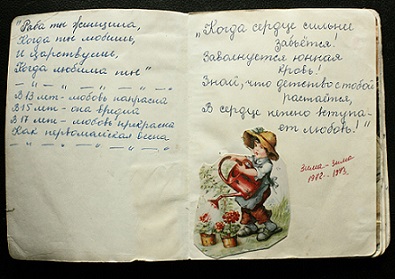 "Рава ты женщина,
Когда ты любишь,
И царствуешь,
Когда любима ты"
— „ — „ — „ — „ —
В 13 лет - любовь напрасна
В 15 лет - она вредна
В 17 лет - любовь прекрасна
Как первомайская весна
— „ — „ — „ — „ —
„Когда сердце сильнее
забьётся!
Заволнуется юнная
кровь!
Знай, что детство с тобой
растаётся,
В сердце нежно вступа-
ет любовь!"
Зима-зима
1982-1983.